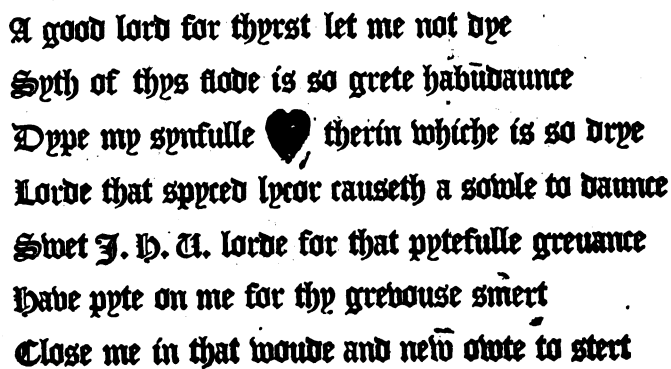 A good lord for thyrst let me not dye
Syth of thys flode is so grete habūdaunce
Dype my synfulle ♥ therin whiche is so drye
Lorde that spyced lycor causeth a sowle to daunce
Swet J. H. U. lorde for that pytefulle greuance
Have pyte on me for thy grevouse smert
Close me in that woude and new̄ owte to stert